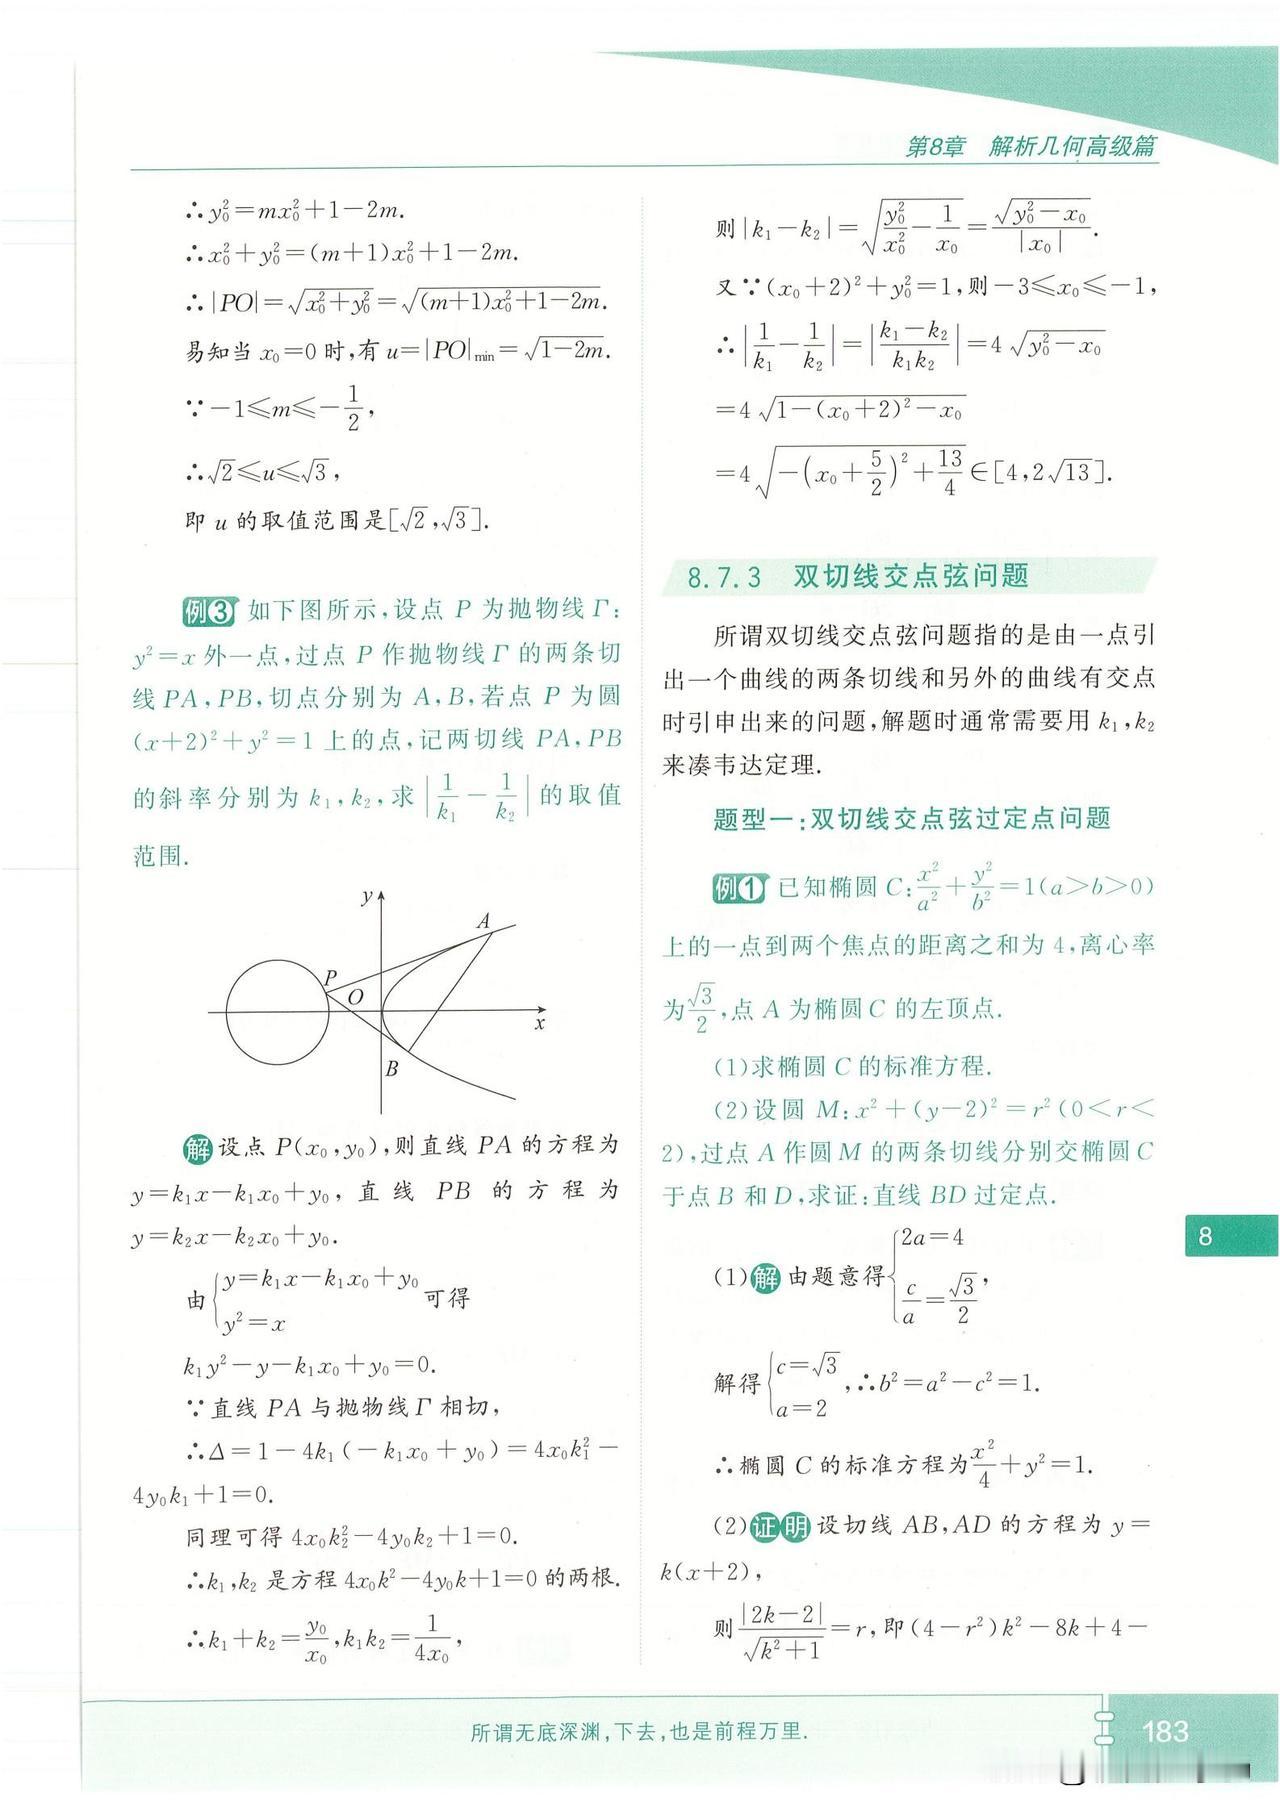 第8章 解析几何高级篇
∴y₀²=mx₀²+1-2m.
∴x₀²+y₀²=(m+1)x₀²+1-2m.
∴|PO|=√(x₀²+y₀²)=√((m+1)x₀²+1-2m).
易知当 x₀=0 时,有 u=|PO|min=√(1-2m).
∵-1≤m≤-1/2,
∴√2≤u≤√3,
即 u 的取值范围是[√2,√3].
例3 如下图所示,设点 P 为抛物线 Γ:
y²=x 外一点,过点 P 作抛物线 Γ 的两条切
线 PA,PB,切点分别为 A,B,若点 P 为圆
(x+2)²+y²=1 上的点,记两切线 PA,PB
的斜率分别为 k₁,k₂,求 |1/k₁-1/k₂| 的取值
范围.
y
A
P
O
x
B
解 设点 P(x₀,y₀),则直线 PA 的方程为
y=k₁x-k₁x₀+y₀, 直线 PB 的方程为
y=k₂x-k₂x₀+y₀.
由{y=k₁x-k₁x₀+y₀
y²=x 可得
k₁y²-y-k₁x₀+y₀=0.
∵直线 PA 与抛物线 Γ 相切,
∴Δ=1-4k₁(-k₁x₀+y₀)=4x₀k₁²-
4y₀k₁+1=0.
同理可得 4x₀k₂²-4y₀k₂+1=0.
∴k₁,k₂ 是方程 4x₀k²-4y₀k+1=0 的两根.
∴k₁+k₂=y₀/x₀,k₁k₂=1/(4x₀),
则|k₁-k₂|=√(y₀²/x₀²-1/x₀)=√(y₀²-x₀)/|x₀|.
又∵(x₀+2)²+y₀²=1,则-3≤x₀≤-1,
∴|1/k₁-1/k₂|=|(k₁-k₂)/(k₁k₂)|=4√(y₀²-x₀)
=4√(1-(x₀+2)²-x₀)
=4√(-(x₀+5/2)²+13/4)∈[4,2√13].
8.7.3 双切线交点弦问题
所谓双切线交点弦问题指的是由一点引
出一个曲线的两条切线和另外的曲线有交点
时引申出来的问题,解题时通常需要用 k₁,k₂
来凑韦达定理.
题型一:双切线交点弦过定点问题
例1 已知椭圆 C:x²/a²+y²/b²=1(a>b>0)
上的一点到两个焦点的距离之和为 4,离心率
为√3/2,点 A 为椭圆 C 的左顶点.
(1)求椭圆 C 的标准方程.
(2)设圆 M:x²+(y-2)²=r²(0<r<
2),过点 A 作圆 M 的两条切线分别交椭圆 C
于点 B 和 D,求证:直线 BD 过定点.
(1)解 由题意得{2a=4
c/a=√3/2,
解得{c=√3
a=2,∴b²=a²-c²=1.
∴椭圆 C 的标准方程为x²/4+y²=1.
(2)证明 设切线 AB,AD 的方程为 y=
k(x+2),
则|2k-2|/√(k²+1)=r,即(4-r²)k²-8k+4-
8
所谓无底深渊,下去,也是前程万里.
183